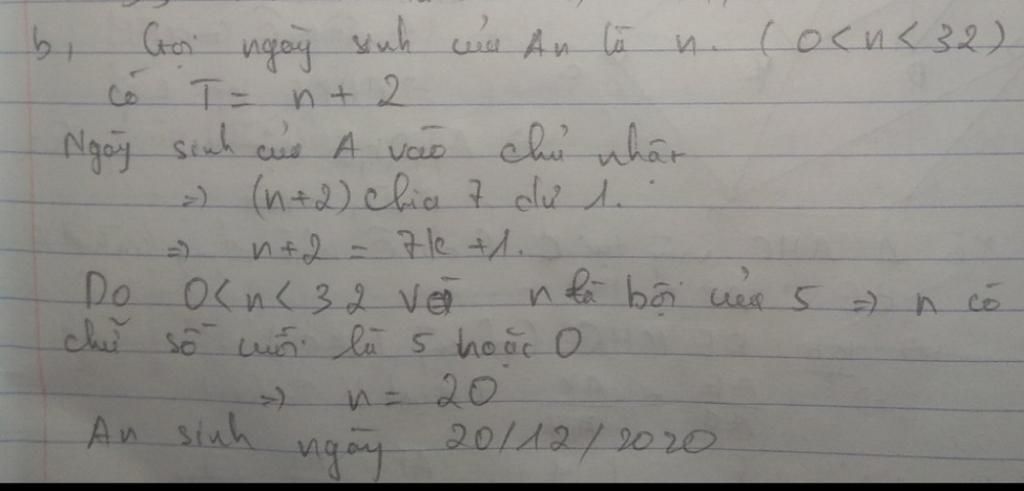 b, Gọi ngày sinh của An là n. (0<n<32)
có T = n + 2
Ngày sinh của A vào chủ nhật
=> (n+2) chia 7 dư 1.
=> n+2 = 7k +1.
Do 0<n<32 và n là bội của 5 => n có
chữ số cuối là 5 hoặc 0
=> n = 20
An sinh ngày 20/12/2020